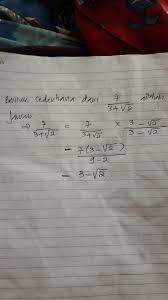 Bentuk sederhana dari 7/(3+√2) adalah
Jawab
⇒ 7/(3+√2) = 7/(3+√2) × (3-√2)/(3-√2)
= 7(3-√2)/(9-2)
= 3-√2